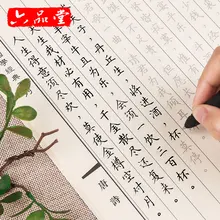 六品堂
学经典
人生得意须尽欢，莫使金樽空对月。
生我材必有用，千金散尽还复来。
牛且为乐，会须一饮三百杯。
夫子，丹丘生，将进酒，杯
唐诗